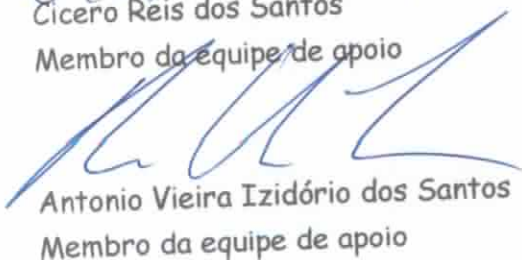 Cicero Reis dos Santos
Membro da equipe de apoio
Antonio Vieira Izidório dos Santos
Membro da equipe de apoio